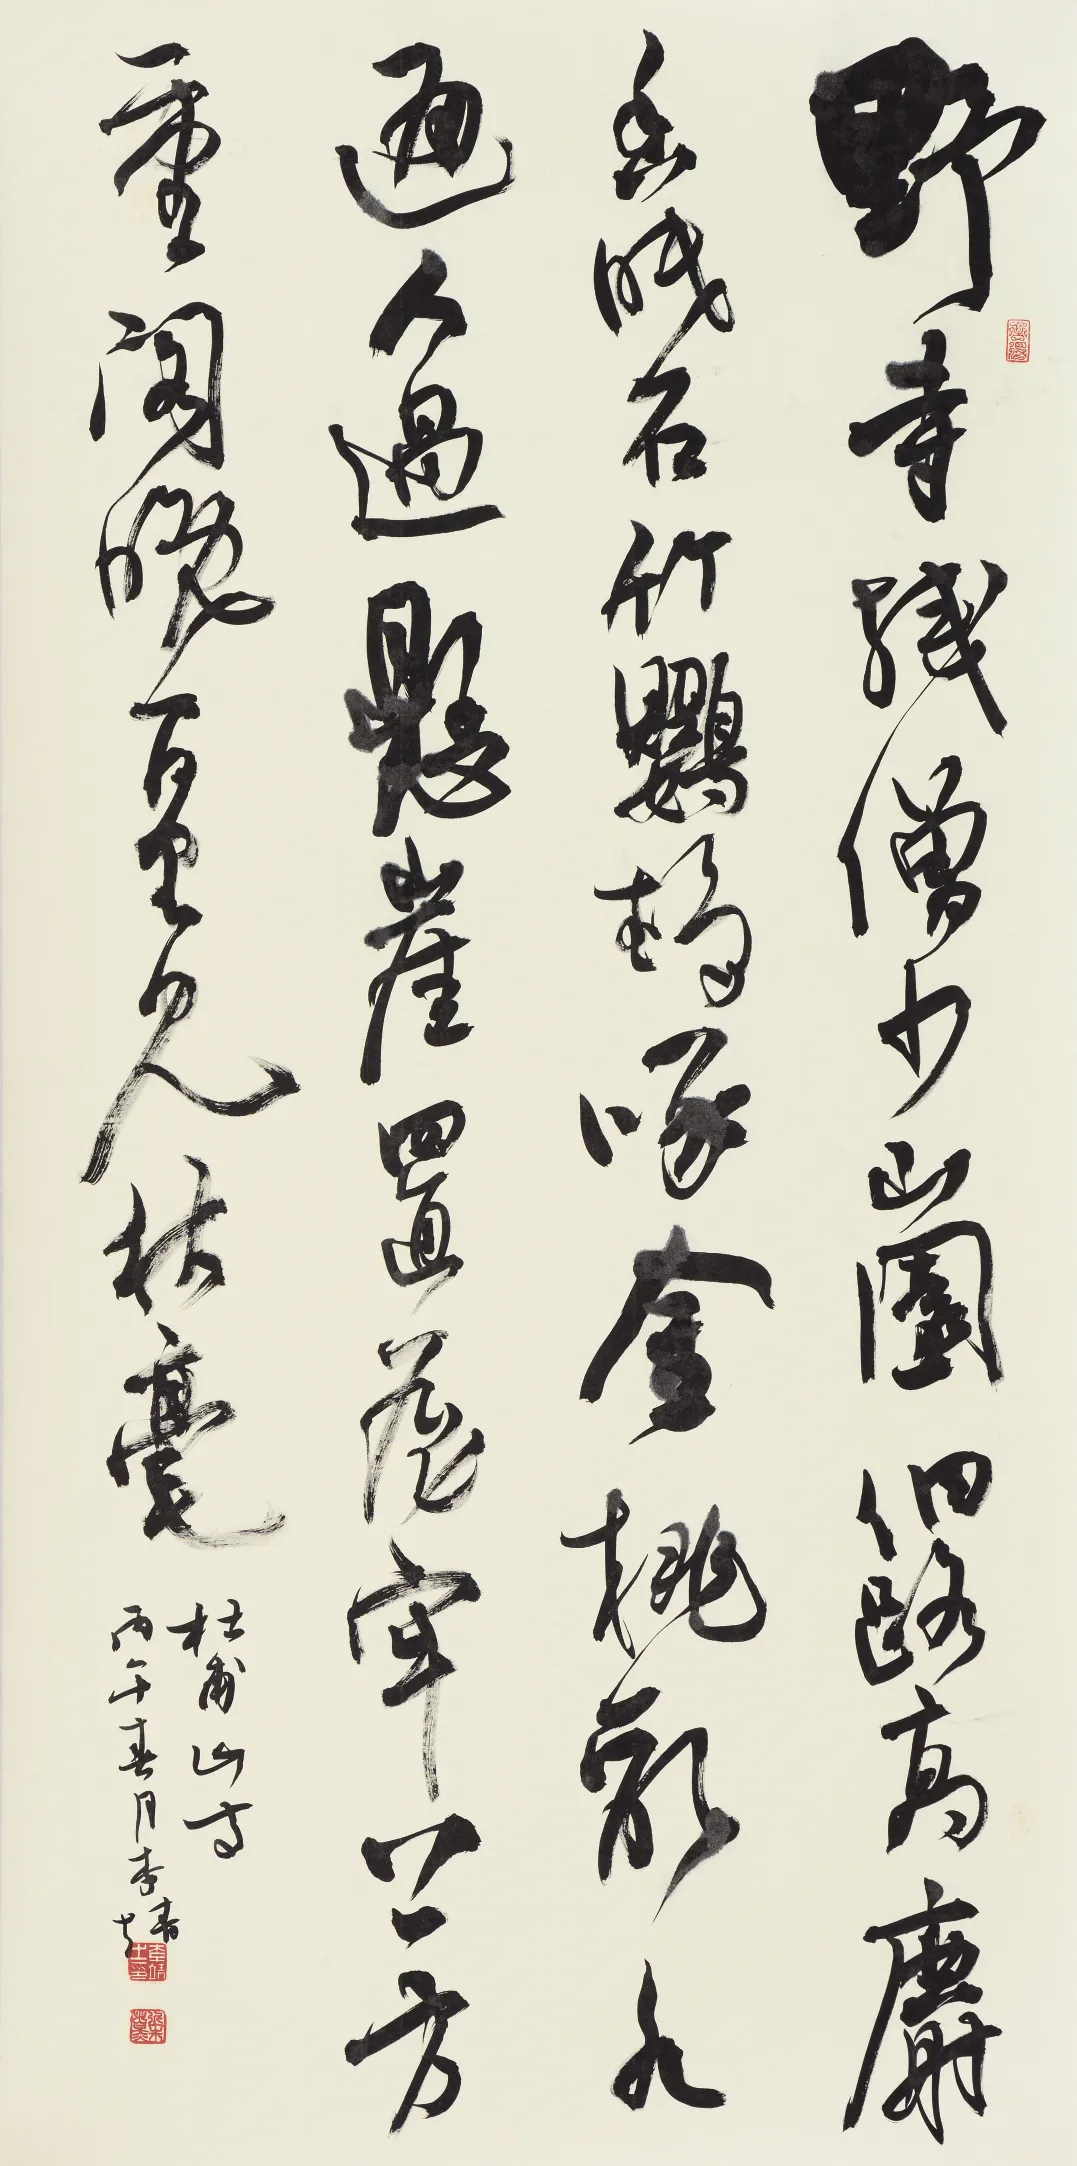 野寺殘僧少山園細路高麝
香眠石竹鸚鵡啄金桃亂水
通人過懸崖置屋牢上方
重閣晚百里見秋毫
杜甫山寺
丙午春月李靖